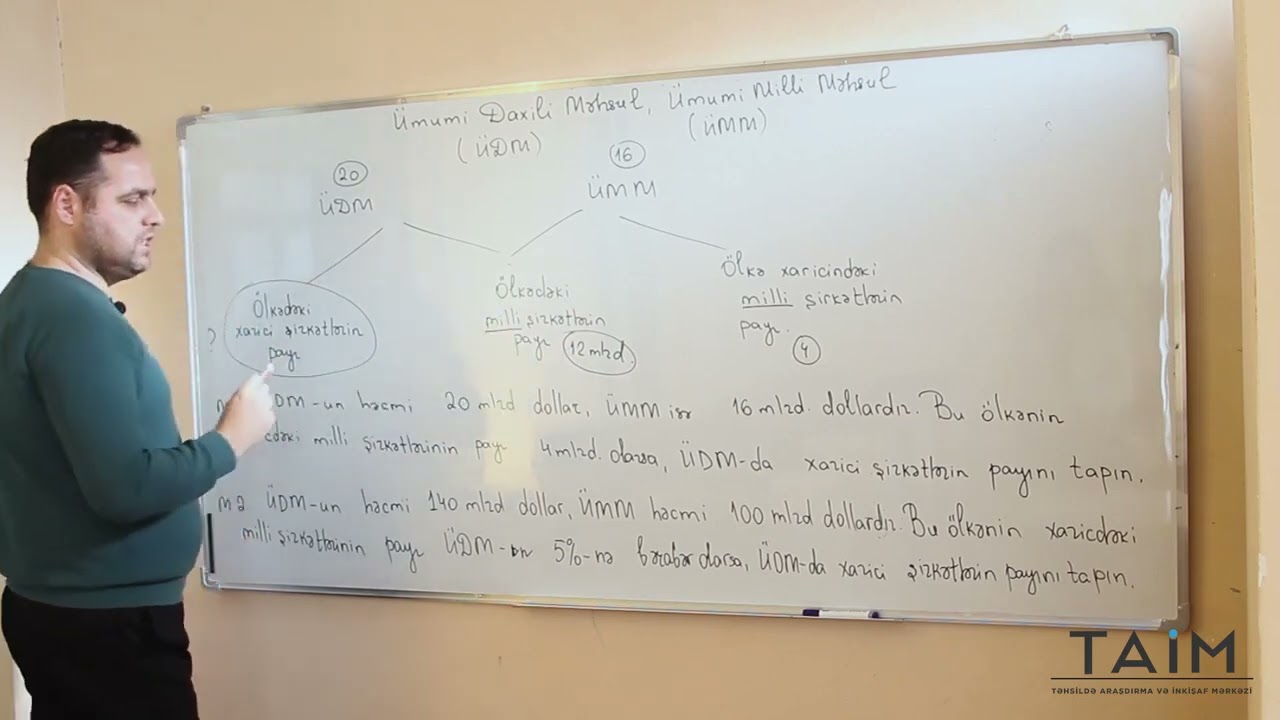 Ümumi Daxili Məhsul, Ümumi Milli Məhsul
(ÜDM) (ÜMM)
20
ÜDM
16
ÜMM
Ölkədəki
xarici şirkətlərin
payı
?
Ölkədəki
milli şirkətlərin
payı 12 mlrd.
Ölkə xaricindəki
milli şirkətlərin
payı.
4
ÜDM-un həcmi 20 mlrd dollar, ÜMM isə 16 mlrd. dollardır. Bu ölkənin
milli şirkətlərinin payı 4 mlrd. olarsa, ÜDM-da xarici şirkətlərin payını tapın.
m2 ÜDM-un həcmi 140 mlrd dollar, ÜMM həcmi 100 mlrd dollardır. Bu ölkənin xaricdəki
milli şirkətlərinin payı ÜDM-un 5%-nə bərabər olarsa, ÜDM-da xarici şirkətlərin payını tapın.
TAİM
TƏHSİLDƏ ARAŞDIRMA VƏ İNKİŞAF MƏRKƏZİ